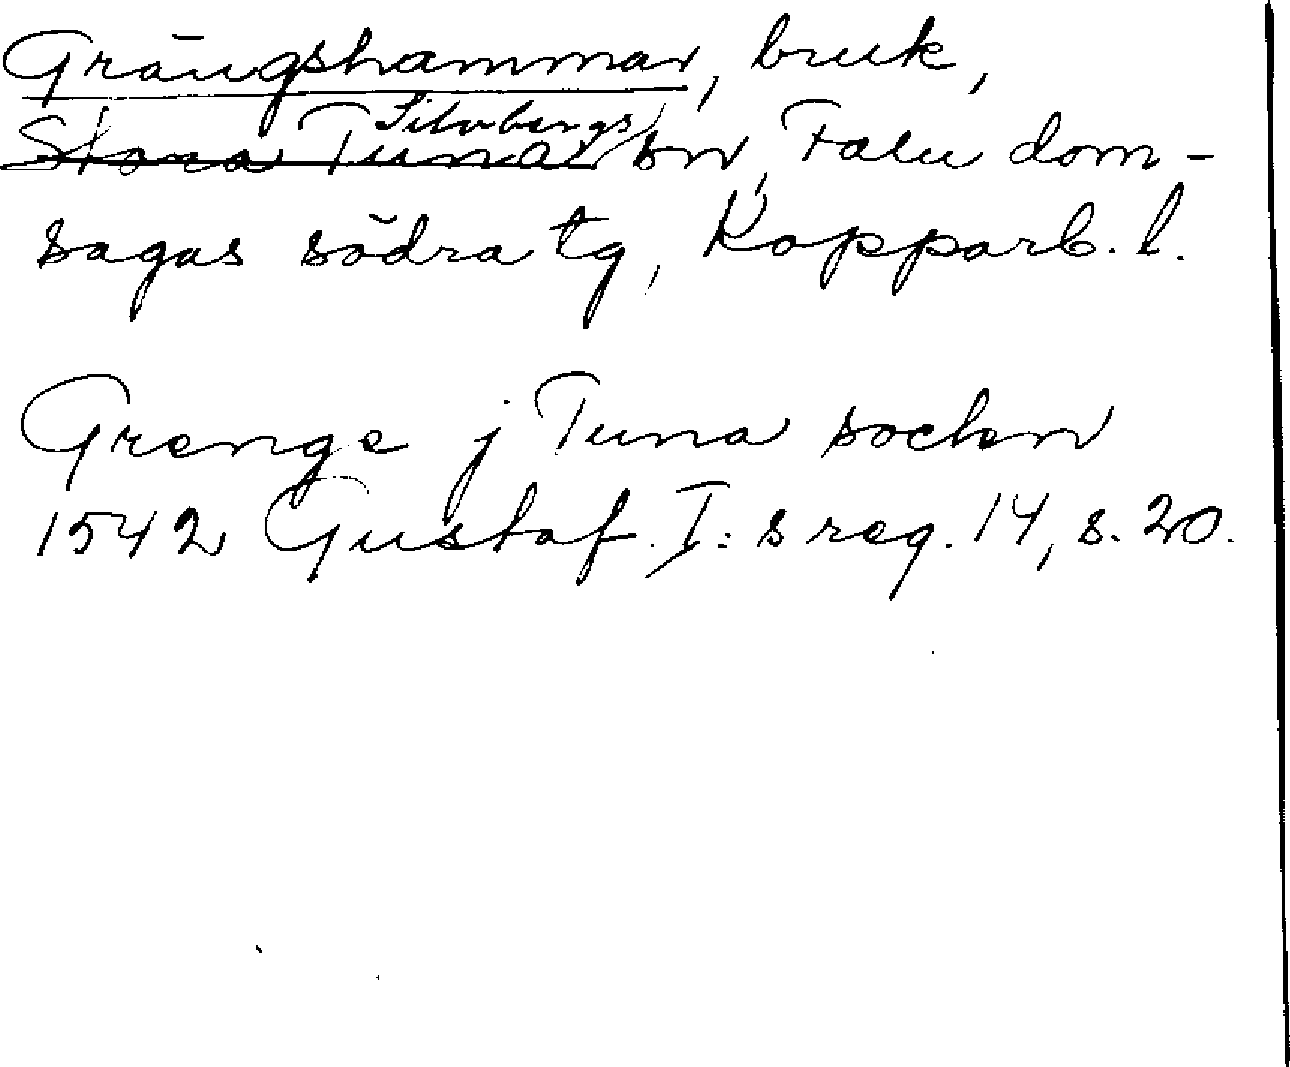 Grängshammar, bruk,
Silvbergs
Stora Tuna sn, Falu dom-
sagas södra tg, Kopparb. l.
Grenge j Tuna sockn
1542 Gustaf I:s reg. 14, s. 20.